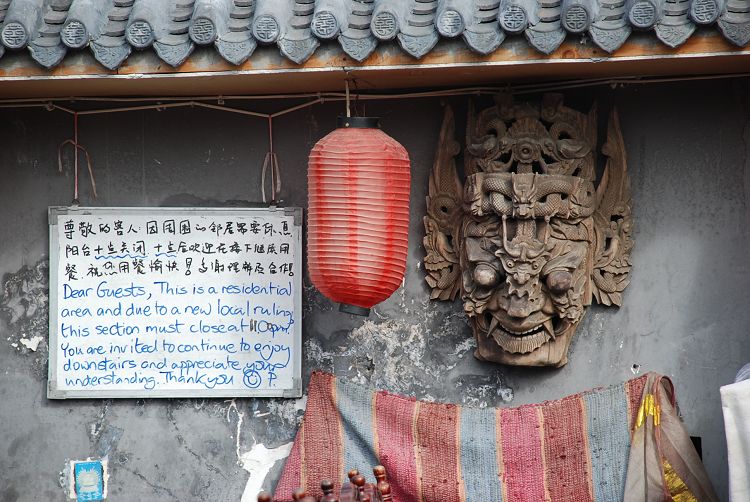 尊敬的客人:因周围的邻居需要休息
阳台十点关闭 十点后欢迎在楼下继续用
餐 祝你用餐愉快! 多谢理解及合作!
Dear Guests, This is a residential
area and due to a new local ruling
this section must close at 10pm.
You are invited to continue to enjoy
downstairs and appreciate your
understanding. Thankyou P.